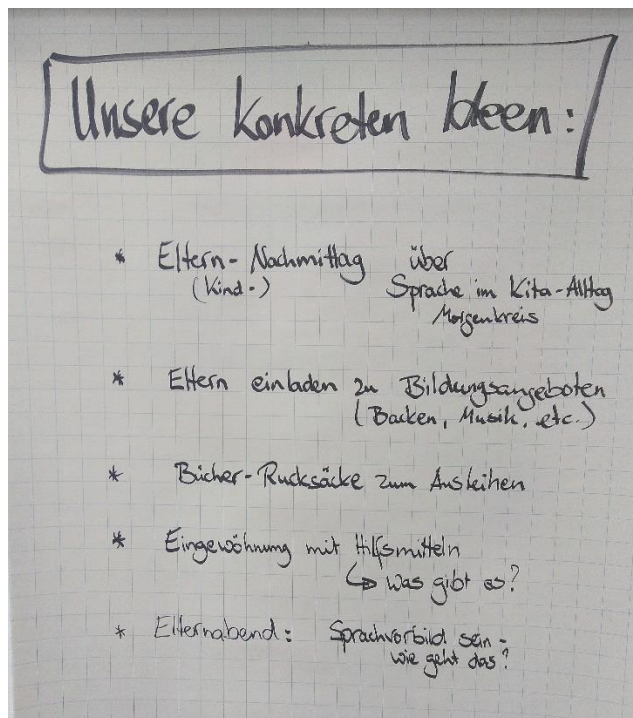 Unsere konkreten Ideen:
* Eltern-Nachmittag über
(Kind-) Sprache im Kita-Alltag
Morgenkreis
* Eltern einladen zu Bildungsangeboten
(Backen, Musik, etc.)
* Bücher-Rucksäcke zum Ausleihen
* Eingewöhnung mit Hilfsmitteln
↳ Was gibt es?
* Elternabend: Sprachvorbild sein -
wie geht das?